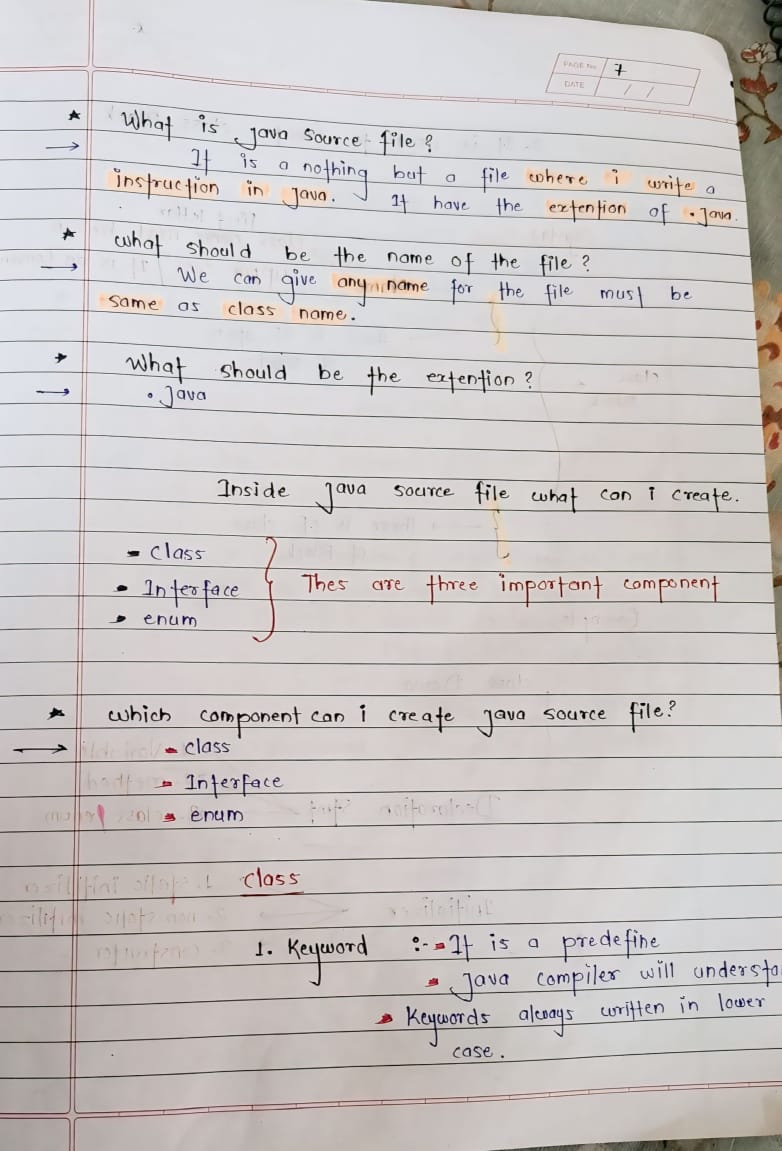 PAGE No. 7
DATE / /
★ What is java source file ?
→ It is a nothing but a file where i write a
instruction in java. It have the extention of .java.
★ what should be the name of the file ?
→ We can give any name for the file must be
same as class name.
★ What should be the extention ?
→ .java
Inside java source file what can i create.
- class
• Interface } Thes are three important component
• enum
★ which component can i create java source file?
→ - class
- Interface
- enum
class
1. Keyword :- - It is a predefine
- Java compiler will understa
- Keywords always written in lower
case.